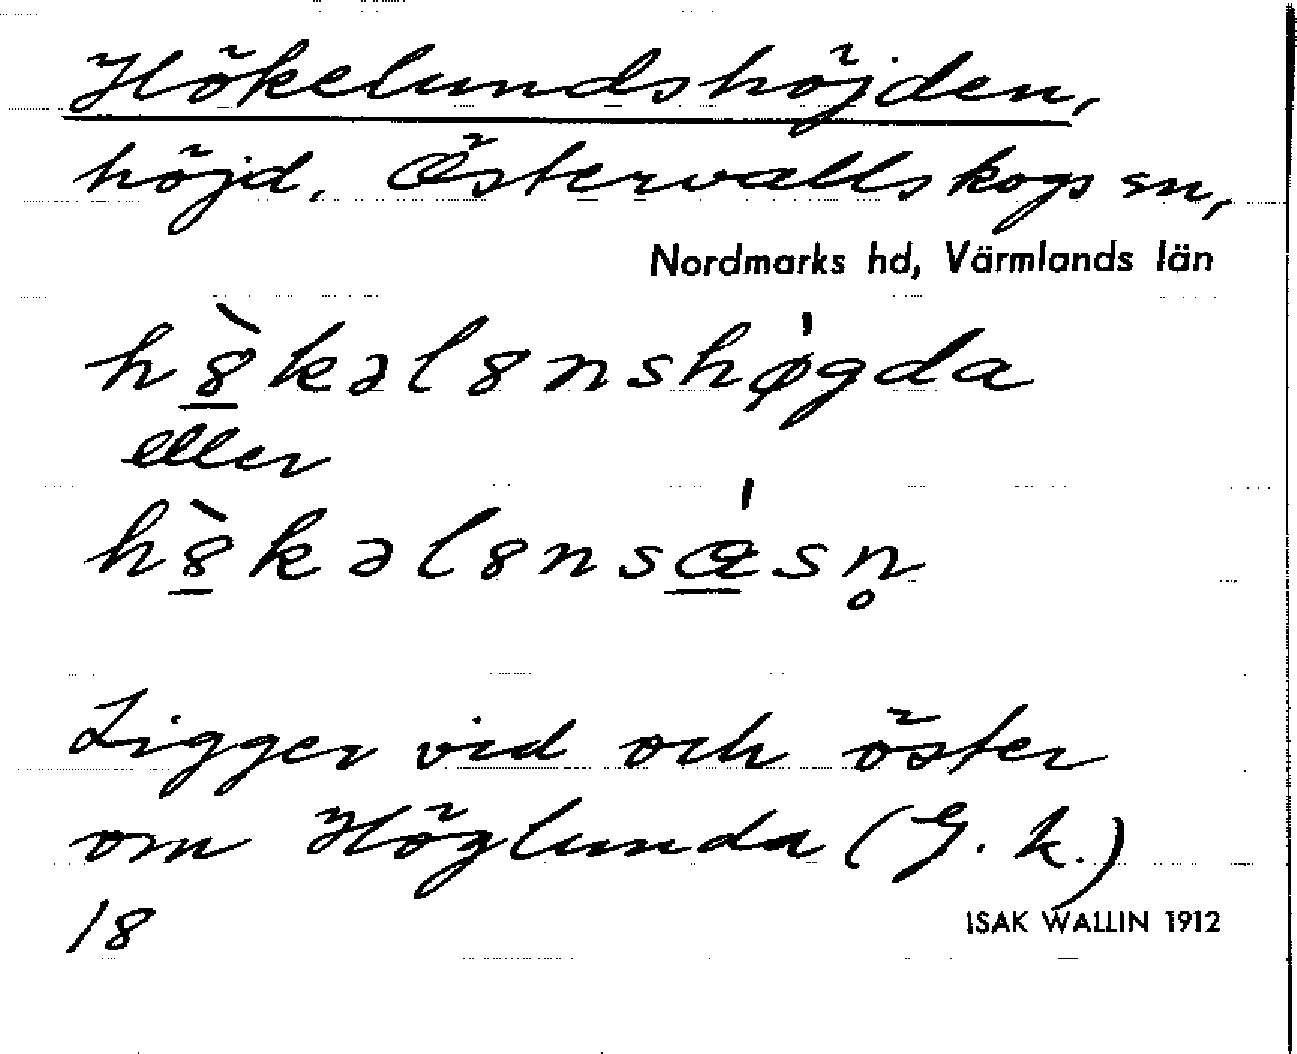 Hökelundshöjden,
höjd. Östervallskogs sn,
Nordmarks hd, Värmlands län
h8̲̀kəl8nshø̍gda
eller
h8̲̀kəl8nsæ̲̍sn̥
Ligger vid och öster
om Höglunda (G. k.)
18
ISAK WALLIN 1912